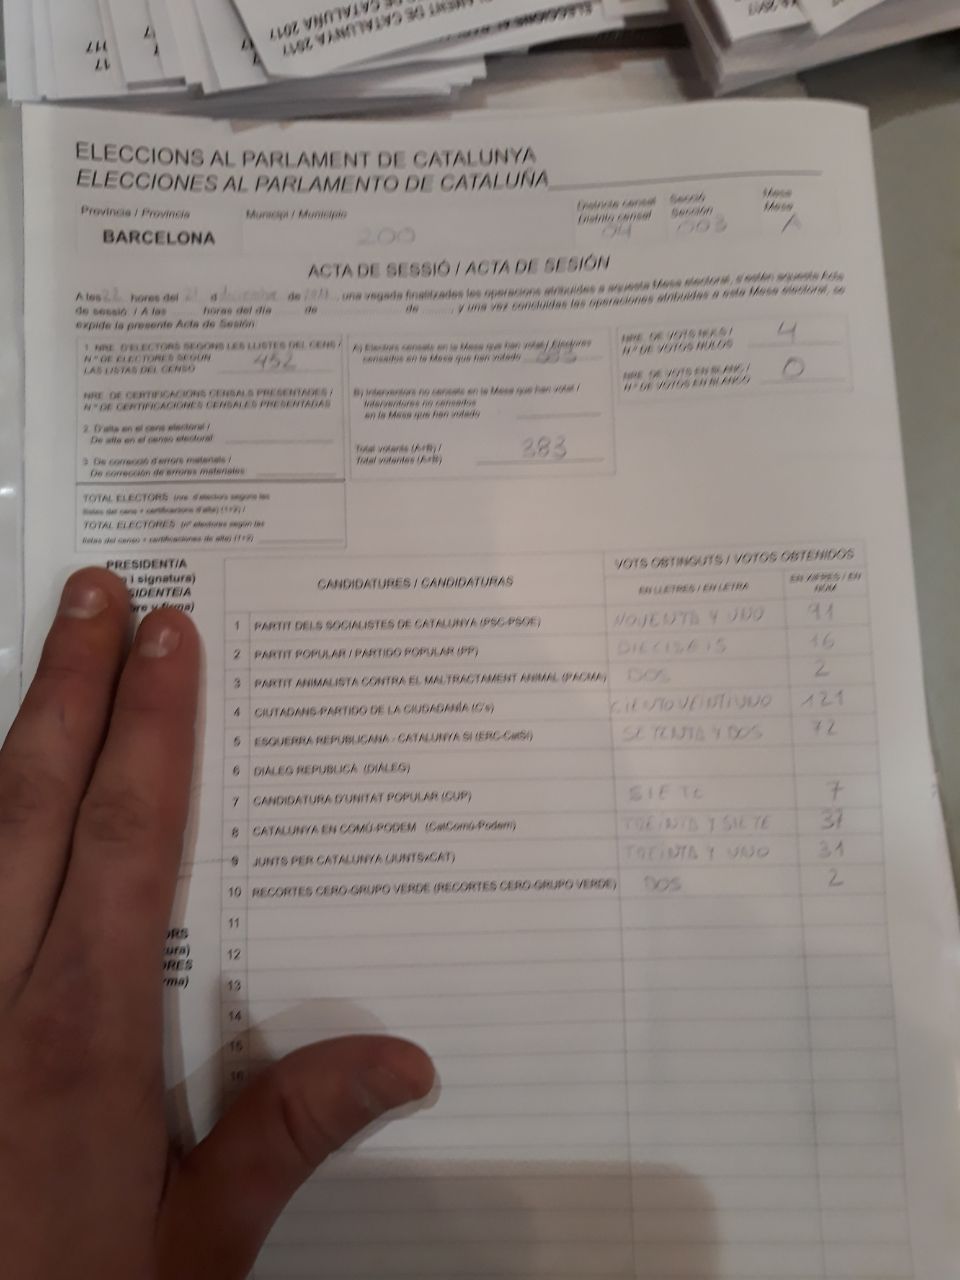 ELECCIONS AL PARLAMENT DE CATALUNYA
ELECCIONES AL PARLAMENTO DE CATALUÑA
Província / Provincia
BARCELONA
Municipi / Municipio
200
Districte censal
Distrito censal
04
Secció
Sección
003
Mesa
Mesa
A
ACTA DE SESSIÓ / ACTA DE SESIÓN
A les 22 hores del 21 d diciembre de 2017, una vegada finalitzades les operacions atribuïdes a aquesta Mesa electoral, s'estén aquesta Acta
de sessió / A las horas del día de de , y una vez concluidas las operaciones atribuidas a esta Mesa electoral, se
expide la presente Acta de Sesión
1. NRE. D'ELECTORS SEGONS LES LLISTES DEL CENS /
N.º DE ELECTORES SEGÚN
LAS LISTAS DEL CENSO 452
NRE. DE CERTIFICACIONS CENSALS PRESENTADES /
N.º DE CERTIFICACIONES CENSALES PRESENTADAS
2. D'alta en el cens electoral /
De alta en el censo electoral
3. De correcció d'errors materials /
De corrección de errores materiales
TOTAL ELECTORS (nre. d'electors segons les
llistes del cens + certificacions d'alta) (1+2) /
TOTAL ELECTORES (nº electores según las
listas del censo + certificaciones de alta) (1+2)
A) Electors censats en la Mesa que han votat / Electores
censados en la Mesa que han votado 383
B) Interventors no censats en la Mesa que han votat /
Interventores no censados
en la Mesa que han votado
Total votants (A+B) /
Total votantes (A+B) 383
NRE. DE VOTS NULS /
N.º DE VOTOS NULOS 4
NRE. DE VOTS EN BLANC /
N.º DE VOTOS EN BLANCO 0
PRESIDENT/A
i signatura)
SIDENTE/A
bre y firma)
CANDIDATURES / CANDIDATURAS
VOTS OBTINGUTS / VOTOS OBTENIDOS
EN LLETRES / EN LETRA
EN XIFRES / EN NÚM.
1 PARTIT DELS SOCIALISTES DE CATALUNYA (PSC-PSOE) NOVENTA Y UNO 91
2 PARTIT POPULAR / PARTIDO POPULAR (PP) DIECISEIS 16
3 PARTIT ANIMALISTA CONTRA EL MALTRACTAMENT ANIMAL (PACMA) DOS 2
4 CIUTADANS-PARTIDO DE LA CIUDADANÍA (C's) CIENTO VEINTIUNO 121
5 ESQUERRA REPUBLICANA - CATALUNYA SÍ (ERC-CatSí) SETENTA Y DOS 72
6 DIÀLEG REPUBLICÀ (DIÀLEG)
7 CANDIDATURA D'UNITAT POPULAR (CUP) SIETE 7
8 CATALUNYA EN COMÚ-PODEM (CatComú-Podem) TREINTA Y SIETE 37
9 JUNTS PER CATALUNYA (JUNTSxCAT) TREINTA Y UNO 31
10 RECORTES CERO-GRUPO VERDE (RECORTES CERO-GRUPO VERDE) DOS 2
11
12
13
14
15
16
ORS
tura)
ORES
rma)